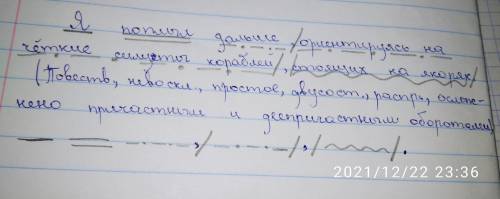 Я поплыл дальше /ориентируясь на
чёткие силуэты кораблей/, стоящих на якорях/
(Повеств., невоскл., простое, двусост., распр., ослож-
нено причастным и деепричастным оборотами)
2021/12/22 23:36